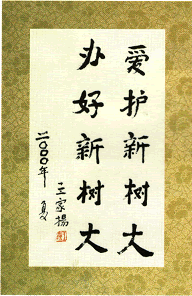 爱护新树大
办好新树大
二〇〇〇年 夏
王家扬